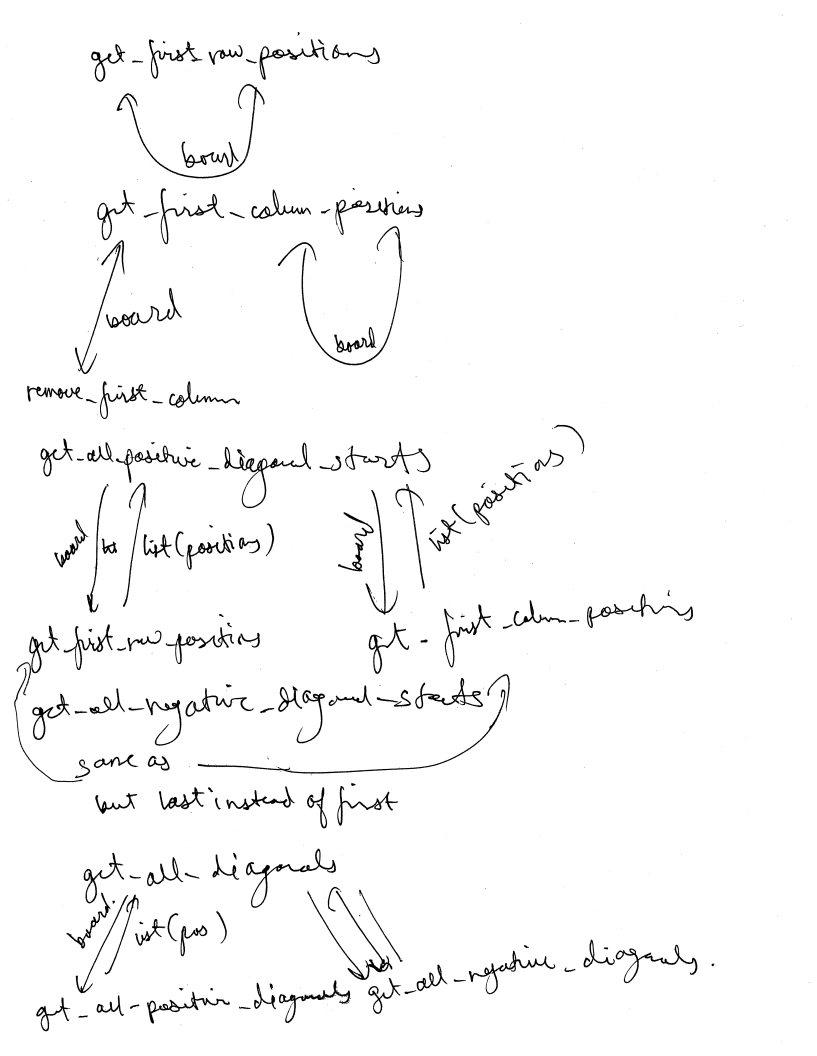 get_first_row_positions
board
get_first_column_positions
board
board
remove_first_column
get_all_positive_diagonal_starts
board list(positions) board list(positions)
get_first_row_positions get_first_column_positions
get_all_negative_diagonal_starts
same as
but last instead of first
get_all_diagonals
board list(pos)
get_all_positive_diagonals get_all_negative_diagonals.